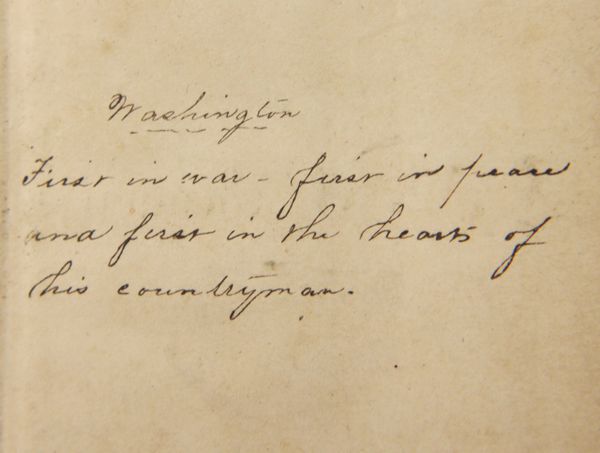 Washington
First in war - first in peace
and first in the hearts of
his countryman.